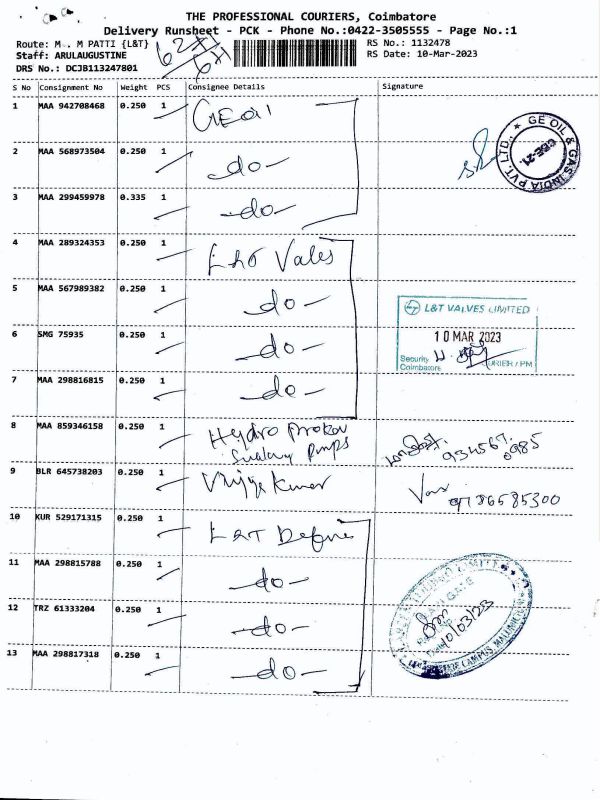 THE PROFESSIONAL COURIERS, Coimbatore
Delivery Runsheet - PCK - Phone No.:0422-3505555 - Page No.:1
Route: M . M PATTI {L&T}
RS No.: 1132478
Staff: ARULAUGUSTINE
RS Date: 10-Mar-2023
DRS No.: DCJB113247801
S No Consignment No Weight PCS Consignee Details Signature
1 MAA 942708468 0.250 1 GE Oil
GE OIL & GAS INDIA PVT. LTD., CBE-21.
2 MAA 568973504 0.250 1 -do-
3 MAA 299459978 0.335 1 -do-
4 MAA 289324353 0.250 1 L&T Vales
5 MAA 567989382 0.250 1 -do-
L&T VALVES LIMITED
6 SMG 75935 0.250 1 -do-
10 MAR 2023
Security
Coimbatore
COURIER / PM
7 MAA 298816815 0.250 1 -do-
8 MAA 859346158 0.250 1 Hydro Prokav
Pumps
934567.
0985
9 BLR 645738203 0.250 1 Vijaya Kumar
9786585300
10 KUR 529171315 0.250 1 L&T Define
11 MAA 298815788 0.250 1 -do-
12 TRZ 61333204 0.250 1 -do-
10/03/23
13 MAA 298817318 0.250 1 -do-